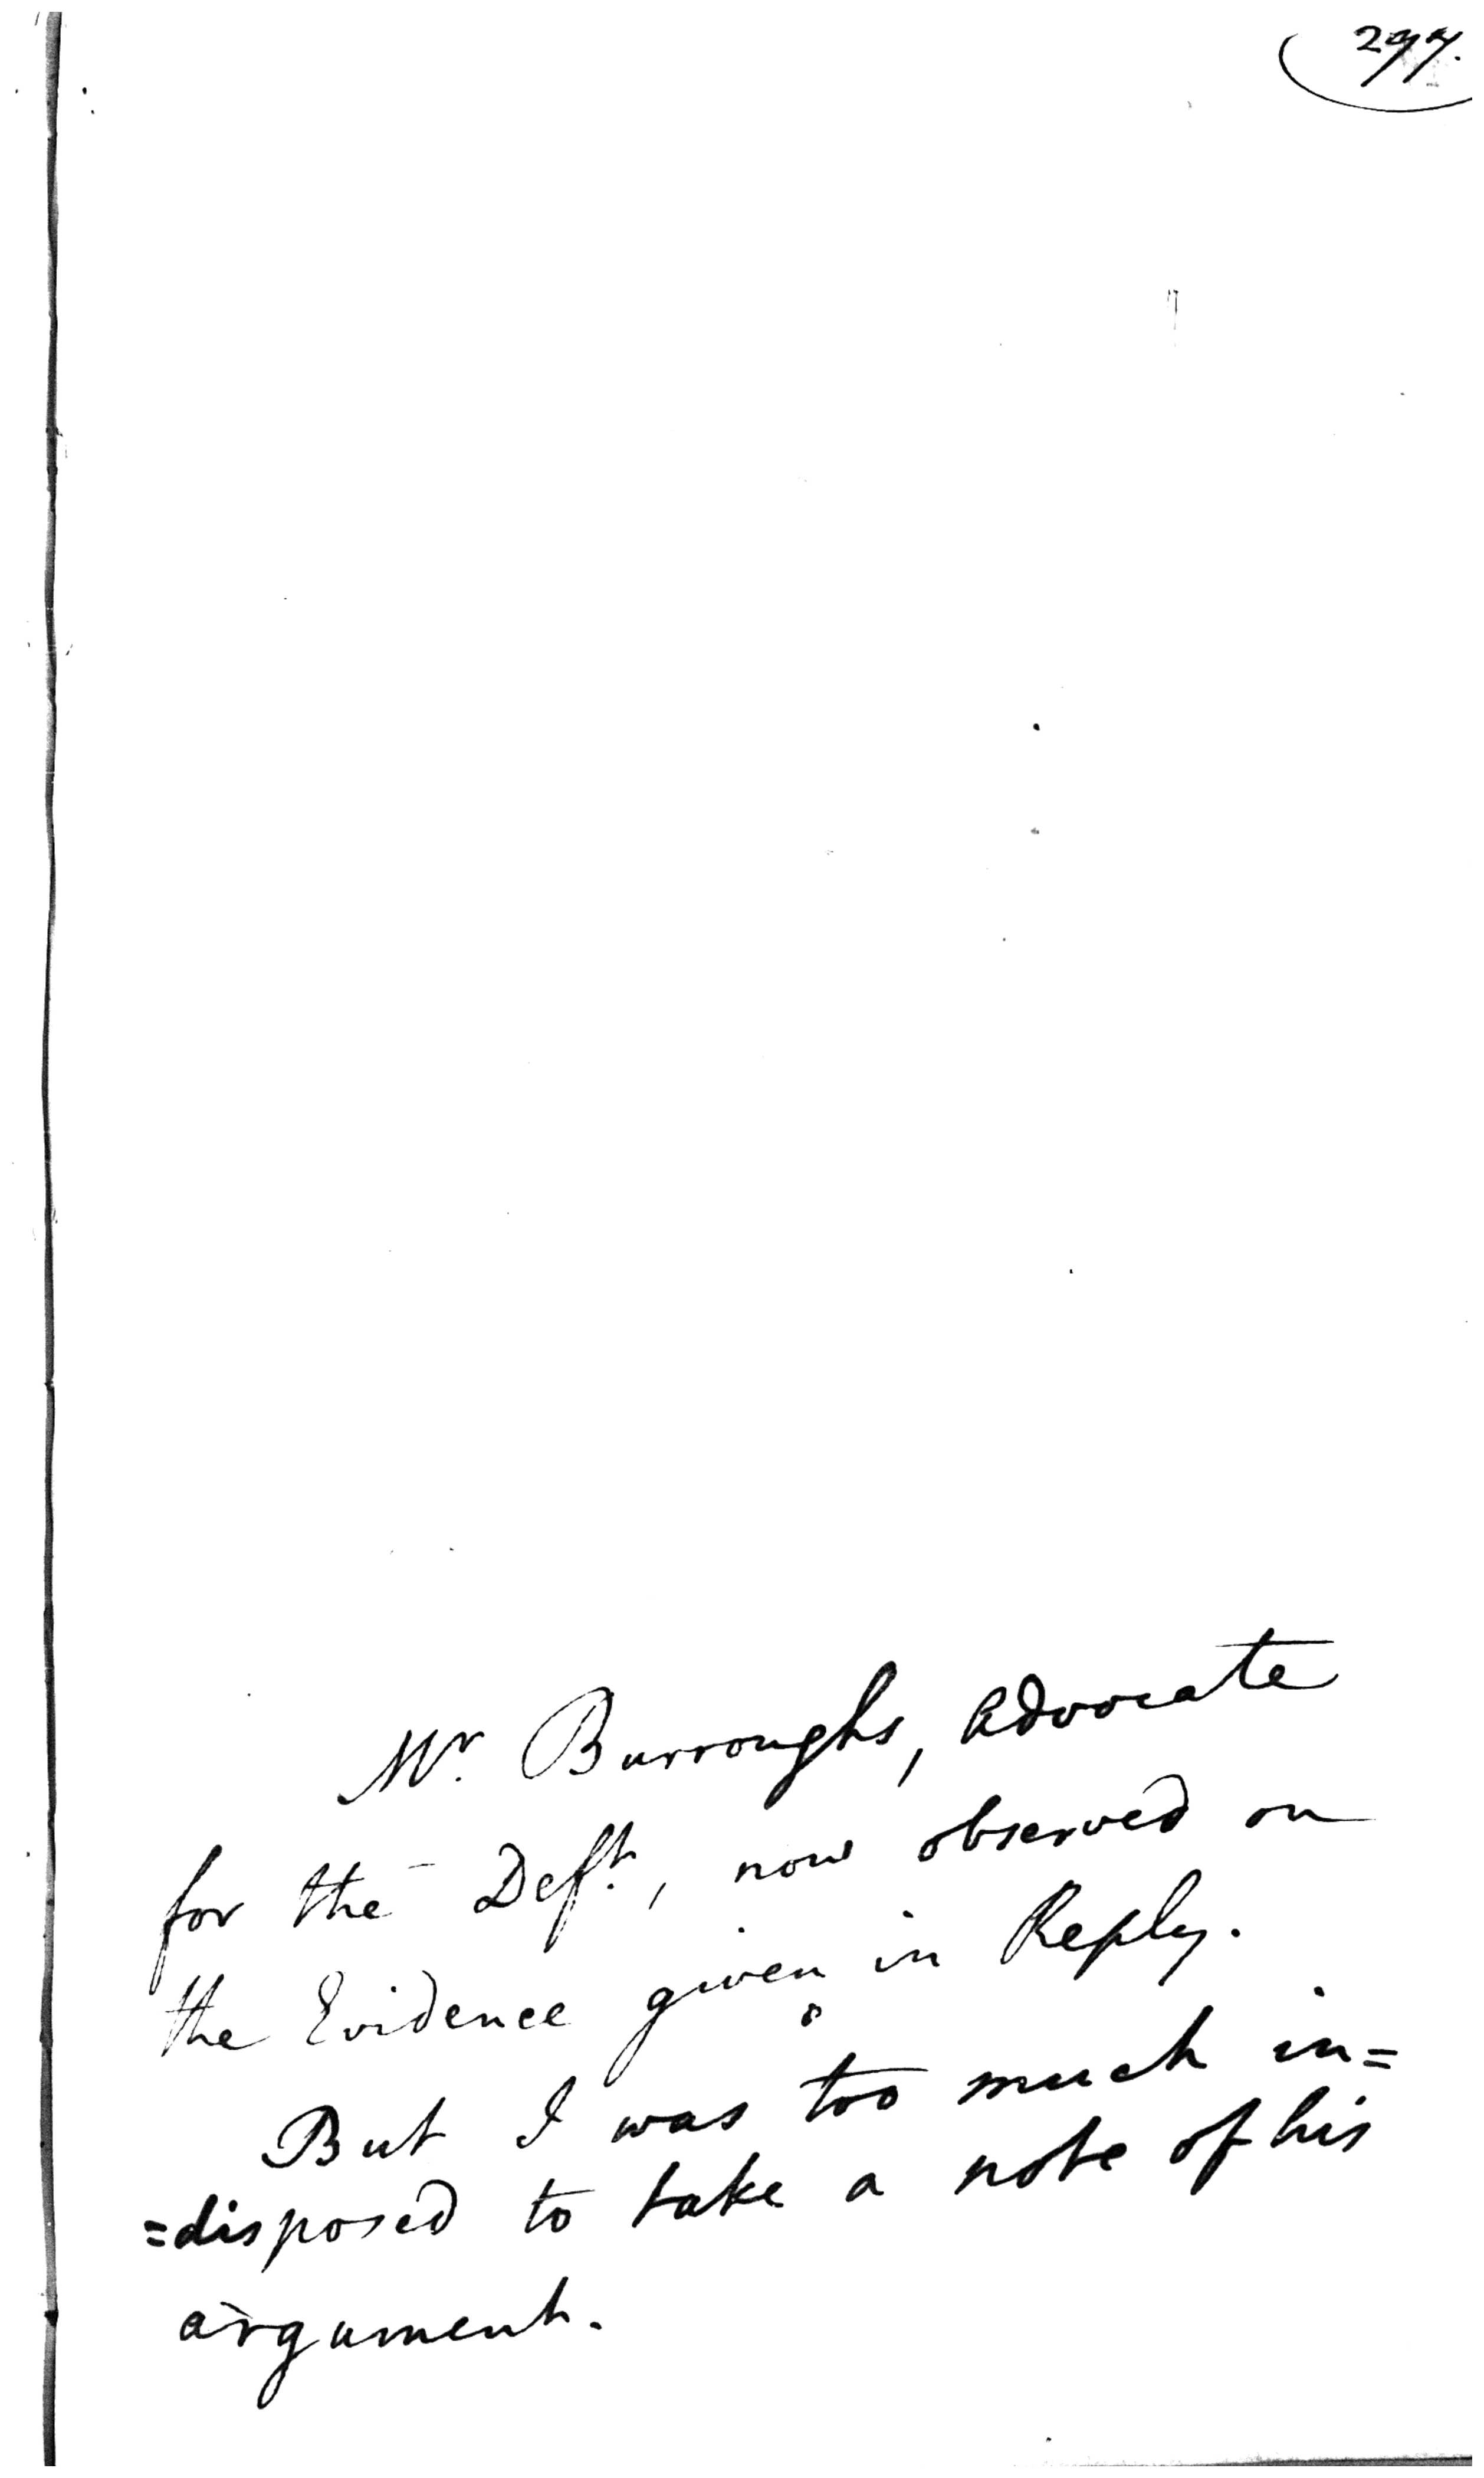 297.
Mr. Burroughs, Advocate
for the Deft., now observed on
the Evidence given in Reply.
But I was too much in=
=disposed to take a note of his
argument.